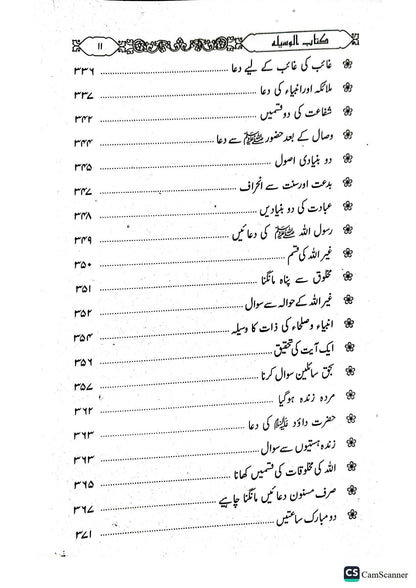 کتاب الوسیلہ ۱۱
غائب کی غائب کے لیے دعا ۳۳۶
ملائکہ اور انبیاء کی دعا ۳۳۷
شفاعت کی دو قسمیں ۳۴۲
وصال کے بعد حضور ﷺ سے دعا ۳۴۴
دو بنیادی اصول ۳۴۵
بدعت اور سنت سے انحراف ۳۴۷
عبادت کی دو بنیادیں ۳۴۸
رسول اللہ ﷺ کی دعائیں ۳۴۹
غیر اللہ کی قسم ۳۵۰
مخلوق سے پناہ مانگنا ۳۵۱
غیر اللہ کے حوالہ سے سوال ۳۵۲
انبیاء و صلحاء کی ذات کا وسیلہ ۳۵۴
ایک آیت کی تحقیق ۳۵۶
بحق سائلین سوال کرنا ۳۵۷
مردہ زندہ ہو گیا ۳۶۲
حضرت داؤد علیہ السلام کی دعا ۳۶۳
زندہ ہستیوں سے سوال ۳۶۳
اللہ کی مخلوقات کی قسمیں کھانا ۳۶۵
صرف مسنون دعائیں مانگنا چاہیے ۳۶۷
دو مبارک ساعتیں ۳۷۱
CS CamScanner